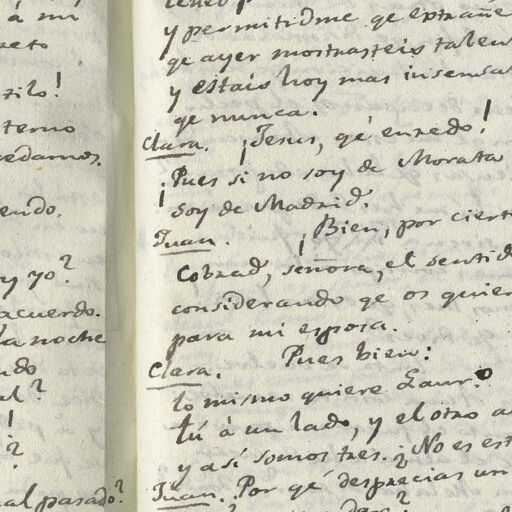 à mi
reto
tilo!
terno
edamos.
endo.
y yo?
acuerdo.
la noche
ndo
al?
!
?
al pasado?
y permitidme qe extrañe
qe ayer mostrasteis talen
y estais hoy mas insensa
qe nunca.
Clara. ¡Jesus, qé enredo!
¡Pues si no soy de Morata
soy de Madrid!
Juan. ¡Bien, por ciert
Cobrad, señora, el sentid
considerando qe os quier
para mi esposa.
Clara. Pues bien:
lo mismo quiere Lauro
tú à un lado, y el otro a
y asi somos tres. ¿No es est
Juan. ¿Por qé desprecias un